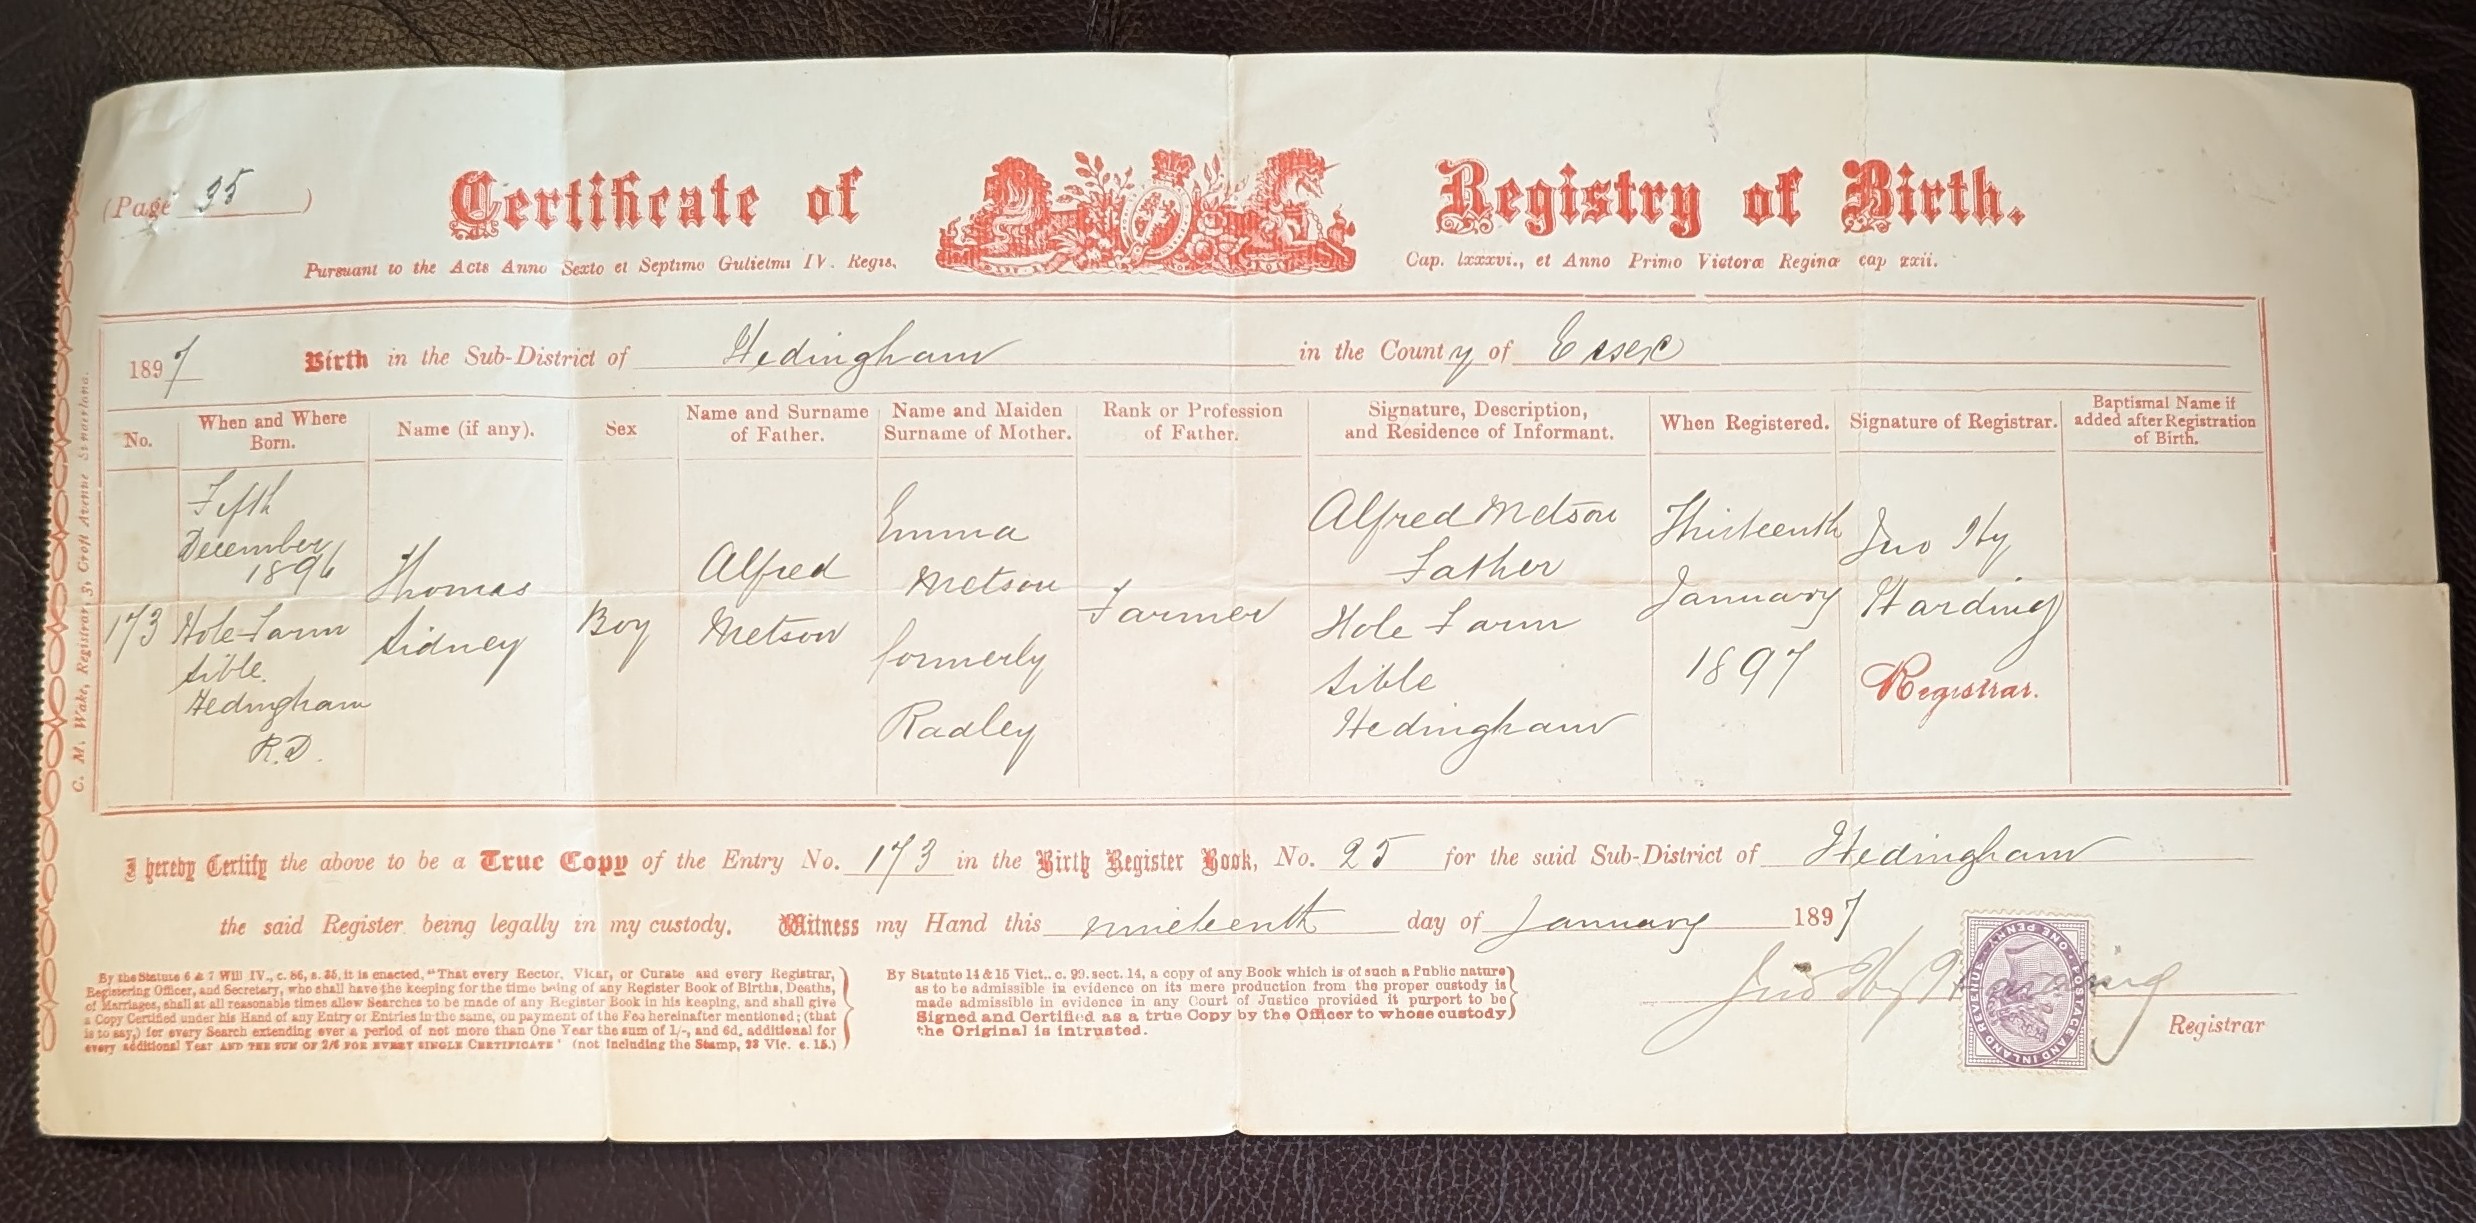 (Page 35)
Certificate of Registry of Birth.
Pursuant to the Acts Anno Sexto et Septimo Gulielmi IV. Regis, Cap. lxxxvi., et Anno Primo Victoræ Reginæ cap xxii.
1897 Birth in the Sub-District of Hedingham in the County of Essex
No.
When and Where
Born.
Name (if any).
Sex
Name and Surname
of Father.
Name and Maiden
Surname of Mother.
Rank or Profession
of Father.
Signature, Description,
and Residence of Informant.
When Registered.
Signature of Registrar.
Baptismal Name if
added after Registration
of Birth.
173
Fifth
December
1896
Hole Farm
Sible
Hedingham
R.D.
Thomas
Sidney
Boy
Alfred
Metson
Emma
Metson
formerly
Radley
Farmer
Alfred Metson
Father
Hole Farm
Sible
Hedingham
Thirteenth
January
1897
Jno Hy
Harding
Registrar.
I hereby Certify the above to be a True Copy of the Entry No. 173 in the Birth Register Book, No. 25 for the said Sub-District of Hedingham
the said Register being legally in my custody. Witness my Hand this nineteenth day of January 1897
Jno Hy Harding
Registrar
By the Statute 6 & 7 Will IV., c. 86, s. 35, it is enacted, "That every Rector, Vicar, or Curate and every Registrar,
Registering Officer, and Secretary, who shall have the keeping for the time being of any Register Book of Births, Deaths,
of Marriages, shall at all reasonable times allow Searches to be made of any Register Book in his keeping, and shall give
a Copy Certified under his Hand of any Entry or Entries in the same, on payment of the Fee hereinafter mentioned; (that
is to say,) for every Search extending over a period of not more than One Year the sum of 1/-, and 6d. additional for
every additional Year AND THE SUM OF 2/6 FOR EVERY SINGLE CERTIFICATE" (not including the Stamp, 23 Vic. c. 15.)
By Statute 14 & 15 Vict., c. 99. sect. 14, a copy of any Book which is of such a Public nature
as to be admissible in evidence on its mere production from the proper custody is
made admissible in evidence in any Court of Justice provided it purport to be
Signed and Certified as a true Copy by the Officer to whose custody
the Original is intrusted.
POSTAGE AND INLAND REVENUE
ONE PENNY
C. M. Wake, Registrar, 3, Croft Avenue Sunderland.